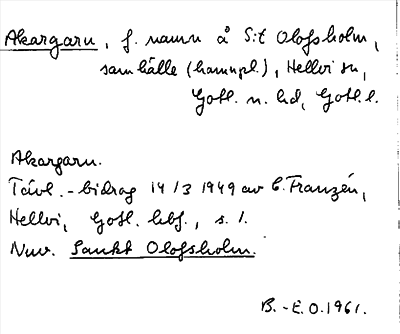 Akargarn, f. namn å S:t Olofsholm,
samhälle (hamnpl.), Hellvi sn,
Gotl. n. hd, Gotl. l.
Akargarn.
Tävl.-bidrag 14/3 1949 av C. Franzén,
Hellvi, Gotl. hbf., s. 1.
Nuv. Sankt Olofsholm.
B.-E.O. 1961.